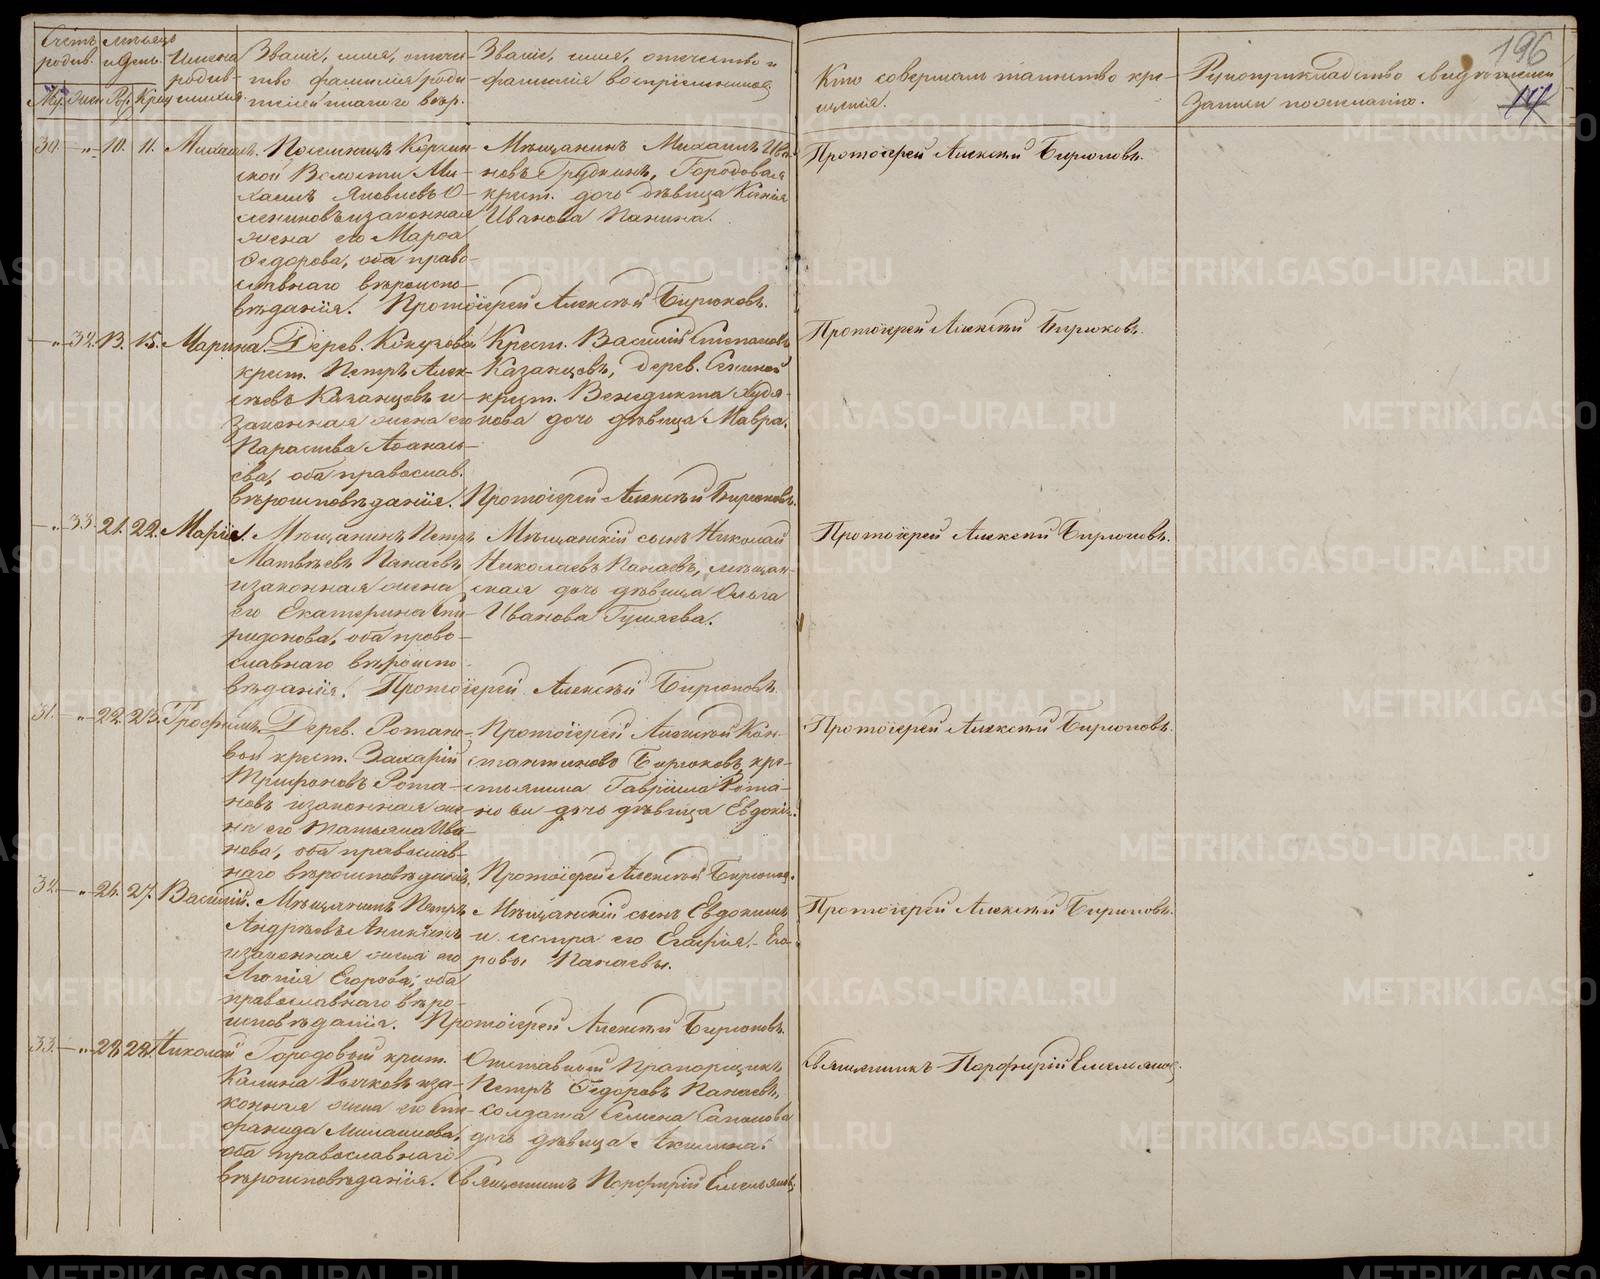 196
147
Счетъ родив.
Муж. Жен.
Мѣсяцъ и день.
Р. Крещ.
Имена родив-
шихся
Званіе, имя, отече-
ство фамилія роди-
телей и какого вѣр.
Званіе, имя, отечество и
фамилія воспріемников
Кто совершалъ таинство кре-
щенія.
Рукоприкладство свидѣтелей
записи по желанію.
30. — „ 10. 11. Михаилъ.
Поселенецъ
ской Волости Ми-
хаилъ Яковлевъ
и законная
жена его Марѳа
Ѳедорова, оба право-
славнаго вѣроиспо-
вѣданія. Протоіерей Алексѣй Бирюковъ.
Мѣщанинъ Михаилъ Ива-
новъ Грудкинъ, Городовая
крест. дочь дѣвица Ксенія
Иванова Панина.
Протоіерей Алексѣй Бирюковъ.
— „ 32. 13. 15. Марина.
Дерев. Кокузова
крест. Петръ Алек-
сѣевъ Казанцовъ и
законная жена его
Парасхева Аѳанась-
ева, оба православ.
вѣроисповѣданія. Протоіерей Алексѣй Бирюковъ.
Крест. Василій Степановъ
Казанцовъ, дерев.
крест. Венедикта Худя-
кова дочь дѣвица Мавра.
Протоіерей Алексѣй Бирюковъ.
— „ 33. 21. 22. Марія.
Мѣщанинъ Петръ
Матвѣевъ Панаевъ
и законная жена
его Екатерина Спи-
ридонова, оба право-
славнаго вѣроиспо-
вѣданія. Протоіерей Алексѣй Бирюковъ.
Мѣщанскій сынъ Николай
Николаевъ Панаевъ, мѣщан-
ская дочь дѣвица Ольга
Иванова Гуляева.
Протоіерей Алексѣй Бирюковъ.
31. — „ 22. 23. Трофимъ.
Дерев. Ротано-
вой крест. Захарій
Трифоновъ Рота-
новъ и законная же-
на его Татьяна Ива-
нова, оба православ-
наго вѣроисповѣданія. Протоіерей Алексѣй Бирюковъ.
Протоіерей Алексѣй Кон-
стантиновъ Бирюковъ, кре-
стьянина Гавріила Рота-
нова дочь дѣвица Евдокія.
Протоіерей Алексѣй Бирюковъ.
32. — „ 24. 27. Василій.
Мѣщанинъ Петръ
Андрѣевъ Аникинъ
и законная жена его
Агнія Егорова, оба
православнаго вѣро-
исповѣданія. Протоіерей Алексѣй Бирюковъ.
Мѣщанскій сынъ Евдокимъ
и сестра его Агафія Его-
ровы Панаевы.
Протоіерей Алексѣй Бирюковъ.
33. — „ 28. 28. Николай
Городовый крест.
Калина Рычковъ и за-
конная жена его Сте-
фанида
оба православнаго
вѣроисповѣданія. Священникъ Порфирій Емельяновъ
Отставной Прапорщикъ
Петръ Ѳедоровъ Панаевъ,
солдата Семена Сапонова
дочь дѣвица Акилина.
Священникъ Порфирій Емельяновъ.
METRIKI.GASO-URAL.RU